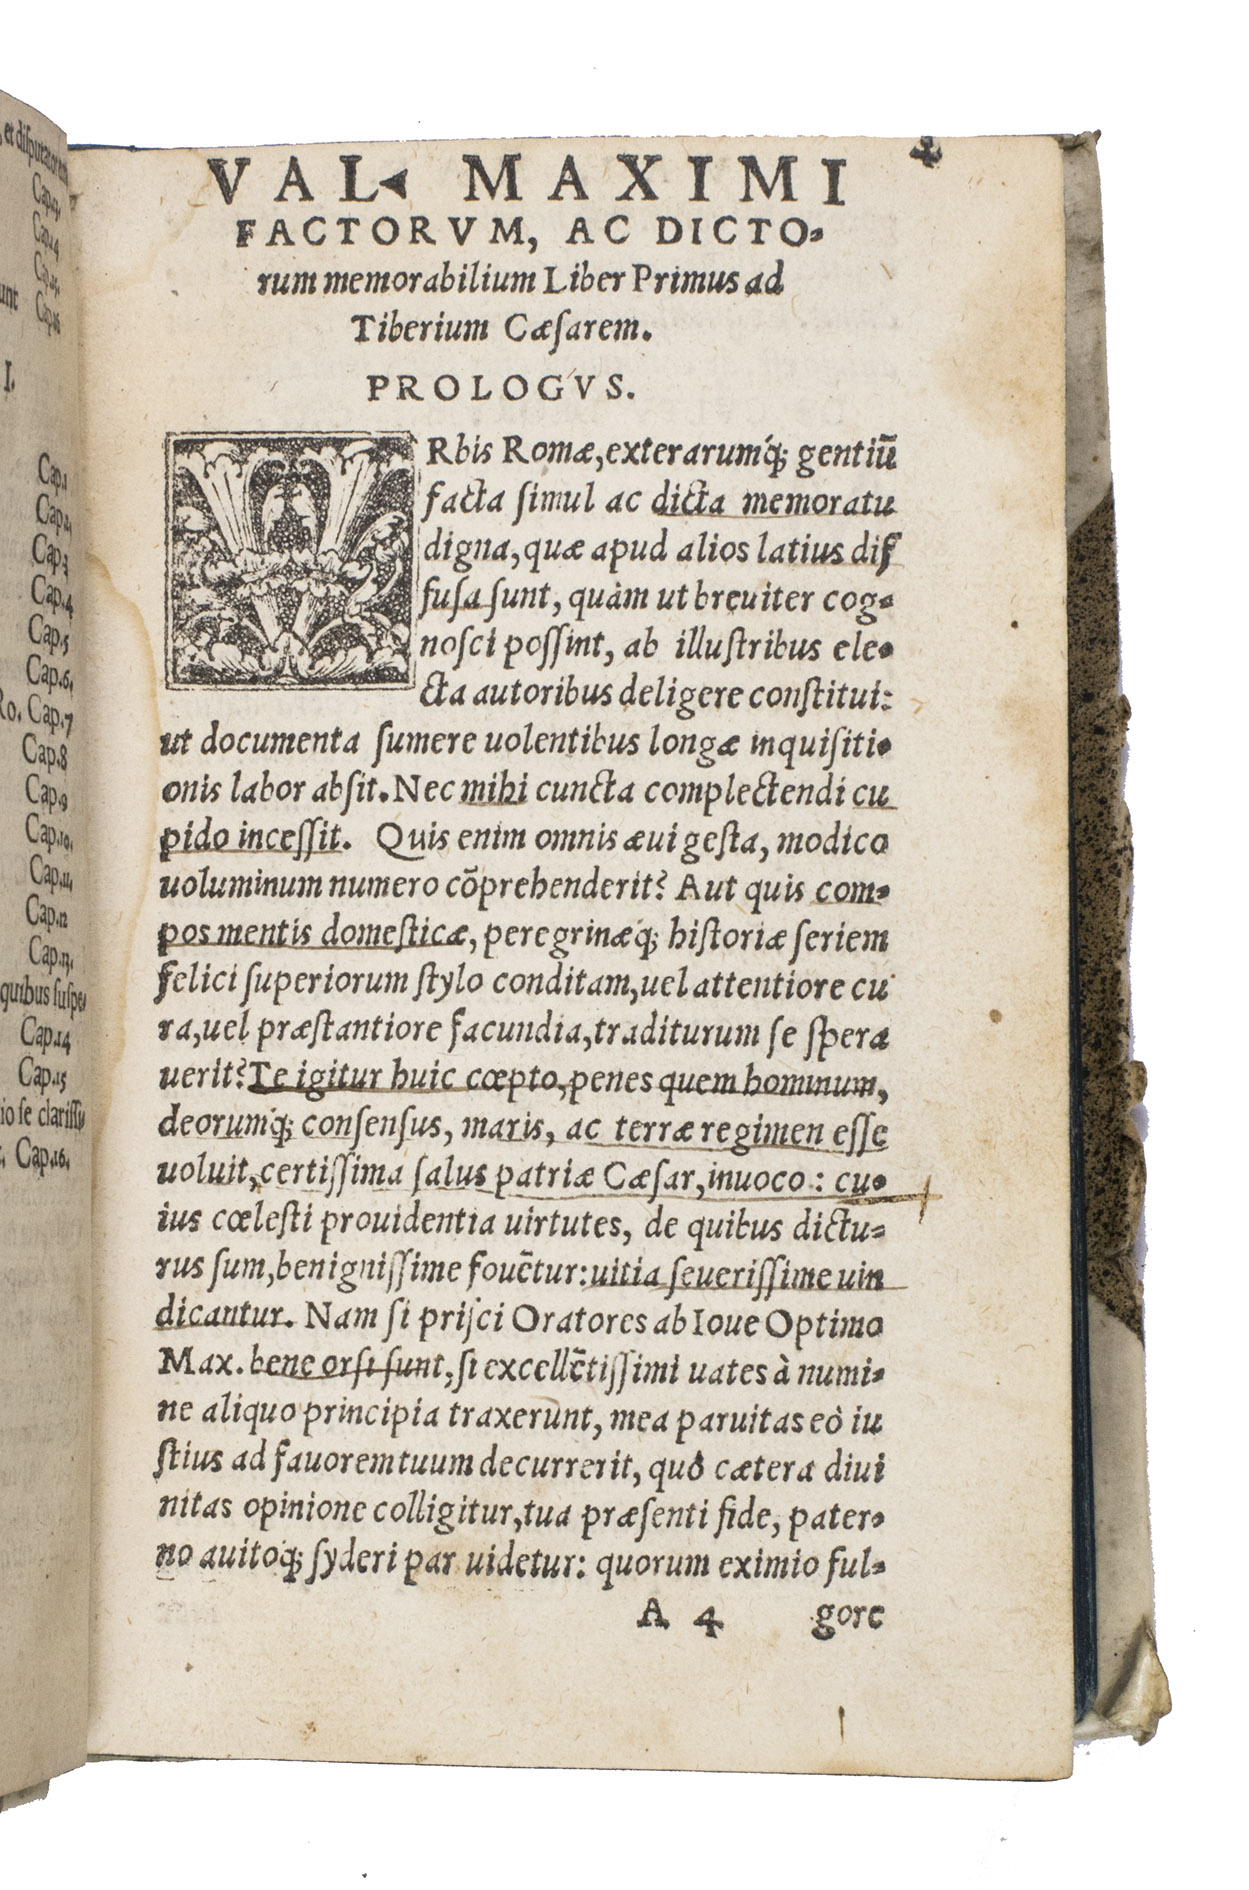 et disputatorem
Cap.13.
Cap.14
Cap.15.
Cap.16
I.
Cap.1
Cap.2.
Cap.3
Cap.4
Cap.5
Cap.6.
Ro. Cap.7
Cap.8
Cap.9
Cap.10.
Cap.11.
Cap.12
Cap.13.
quibus suspe
Cap.14
Cap.15
Cap.16.
4
VAL. MAXIMI
FACTORVM, AC DICTO-
rum memorabilium Liber Primus ad
Tiberium Cæſarem.
PROLOGVS.
Rbis Romæ, exterarumq́; gentiū
facta ſimul ac dicta memoratu
digna, quæ apud alios latius dif
fuſa ſunt, quàm ut breuiter cog-
noſci poſſint, ab illuſtribus ele-
cta autoribus deligere conſtitui:
ut documenta ſumere uolentibus longæ inquiſiti-
onis labor abſit. Nec mihi cuncta complectendi cu
pido inceſſit. Quis enim omnis æui geſta, modico
uoluminum numero cōprehenderit? Aut quis com-
pos mentis domeſticæ, peregrinæq́; hiſtoriæ ſeriem
felici ſuperiorum ſtylo conditam, uel attentiore cu
ra, uel præſtantiore facundia, traditurum ſe ſpera
uerit? Te igitur huic cœpto, penes quem hominum,
deorumq́; conſenſus, maris, ac terræ regimen eſſe
uoluit, certiſſima ſalus patriæ Cæſar, inuoco: cu-
ius cœleſti prouidentia uirtutes, de quibus dictu-
rus ſum, benigniſſime fouētur: uitia ſeueriſſime uin
dicantur. Nam ſi priſci Oratores ab Ioue Optimo
Max. bene orſi ſunt, ſi excellētiſſimi uates à numi-
ne aliquo principia traxerunt, mea paruitas eò iu
ſtius ad fauorem tuum decurrerit, quò cætera diui
nitas opinione colligitur, tua præſenti fide, pater-
no auitoq́; ſyderi par uidetur: quorum eximio ful-
A 4 gore